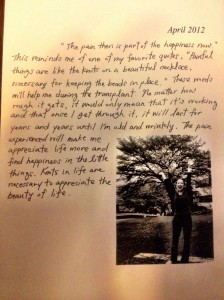 April 2012
"The pain then is part of the happiness now."
This reminds me of one of my favorite quotes. "Painful
things are like the knots on a beautiful necklace,
necessary for keeping the beads in place." These words
will help me during the transplant. No matter how
rough it gets, it would only mean that it's working
and that once I get through it, it will last for
years and years until I'm old and wrinkly. The pain
experienced will make me
appreciate life more and
find happiness in the little
things. Knots in life are
necessary to appreciate the
beauty of life.